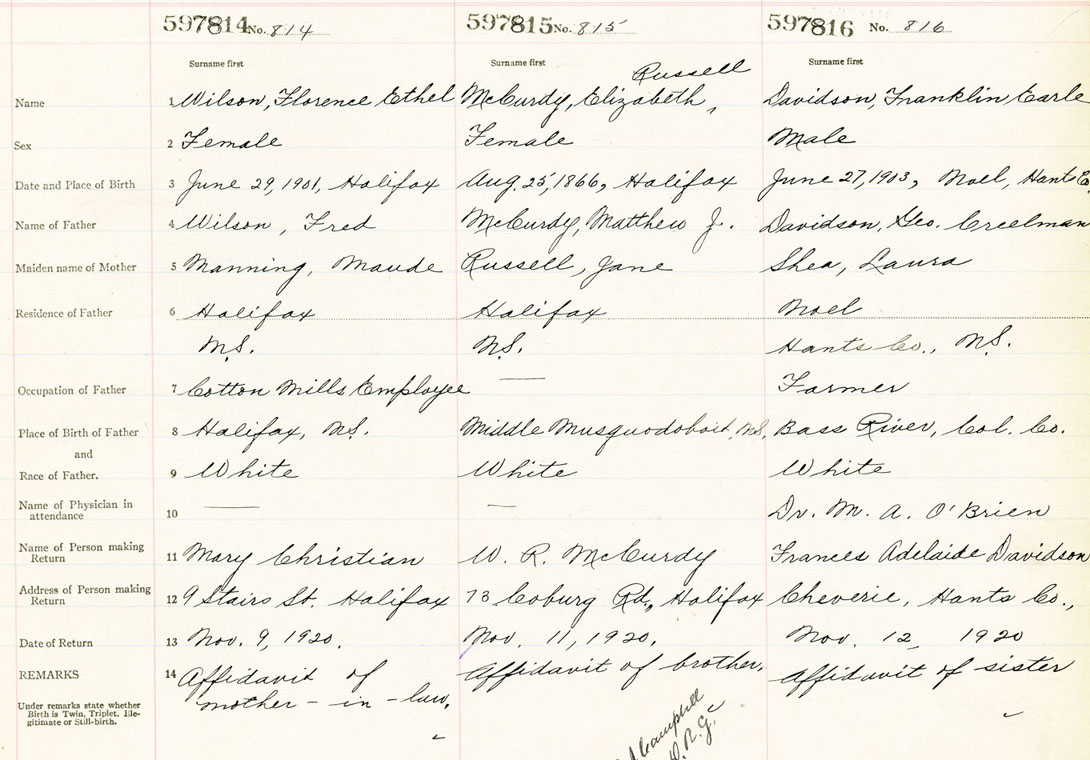 597814 No. 814 597815 No. 815 597816 No. 816
Surname first Surname first Surname first
Russell
Name 1 Wilson, Florence Ethel McCurdy, Elizabeth, Davidson, Franklin Earle
Sex 2 Female Female Male
Date and Place of Birth 3 June 29, 1901, Halifax Aug. 25, 1866, Halifax June 27, 1903, Noel, Hants Co.
Name of Father 4 Wilson, Fred McCurdy, Matthew J. Davidson, Geo. Creelman
Maiden name of Mother 5 Manning, Maude Russell, Jane Shea, Laura
Residence of Father 6 Halifax Halifax Noel
N.S. N.S. Hants Co., N.S.
Occupation of Father 7 Cotton Mills Employee — Farmer
Place of Birth of Father 8 Halifax, N.S. Middle Musquodoboit, N.S. Bass River, Col. Co.
and
Race of Father. 9 White White White
Name of Physician in
attendance 10 — — Dr. M. A. O'Brien
Name of Person making
Return 11 Mary Christian W. R. McCurdy Frances Adelaide Davidson
Address of Person making
Return 12 9 Stairs St. Halifax 73 Coburg Rd., Halifax Cheverie, Hants Co.,
Date of Return 13 Nov. 9, 1920. Nov. 11, 1920. Nov. 12, 1920
REMARKS 14 Affidavit of Affidavit of brother. Affidavit of sister
mother-in-law.
Under remarks state whether
Birth is Twin, Triplet, Ille-
gitimate or Still-birth.
Campbell
D.R.G.